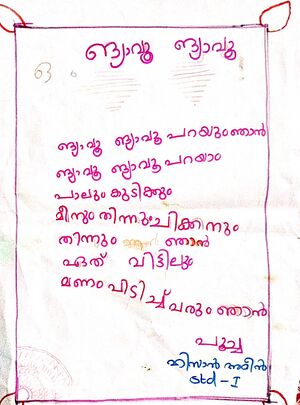 ങ്യാവൂ ങ്യാവൂ
ങ്യാവൂ ങ്യാവൂ പറയുംഞാൻ
ങ്യാവൂ ങ്യാവൂ പറയാം
പാലും കുടിക്കും
മീനും തിന്നും ചിക്കനും
തിന്നും ഞാൻ
ഏത് വിട്ടിലും
മണം പിടിച്ച് വരും ഞാൻ
പൂച്ച
std - I